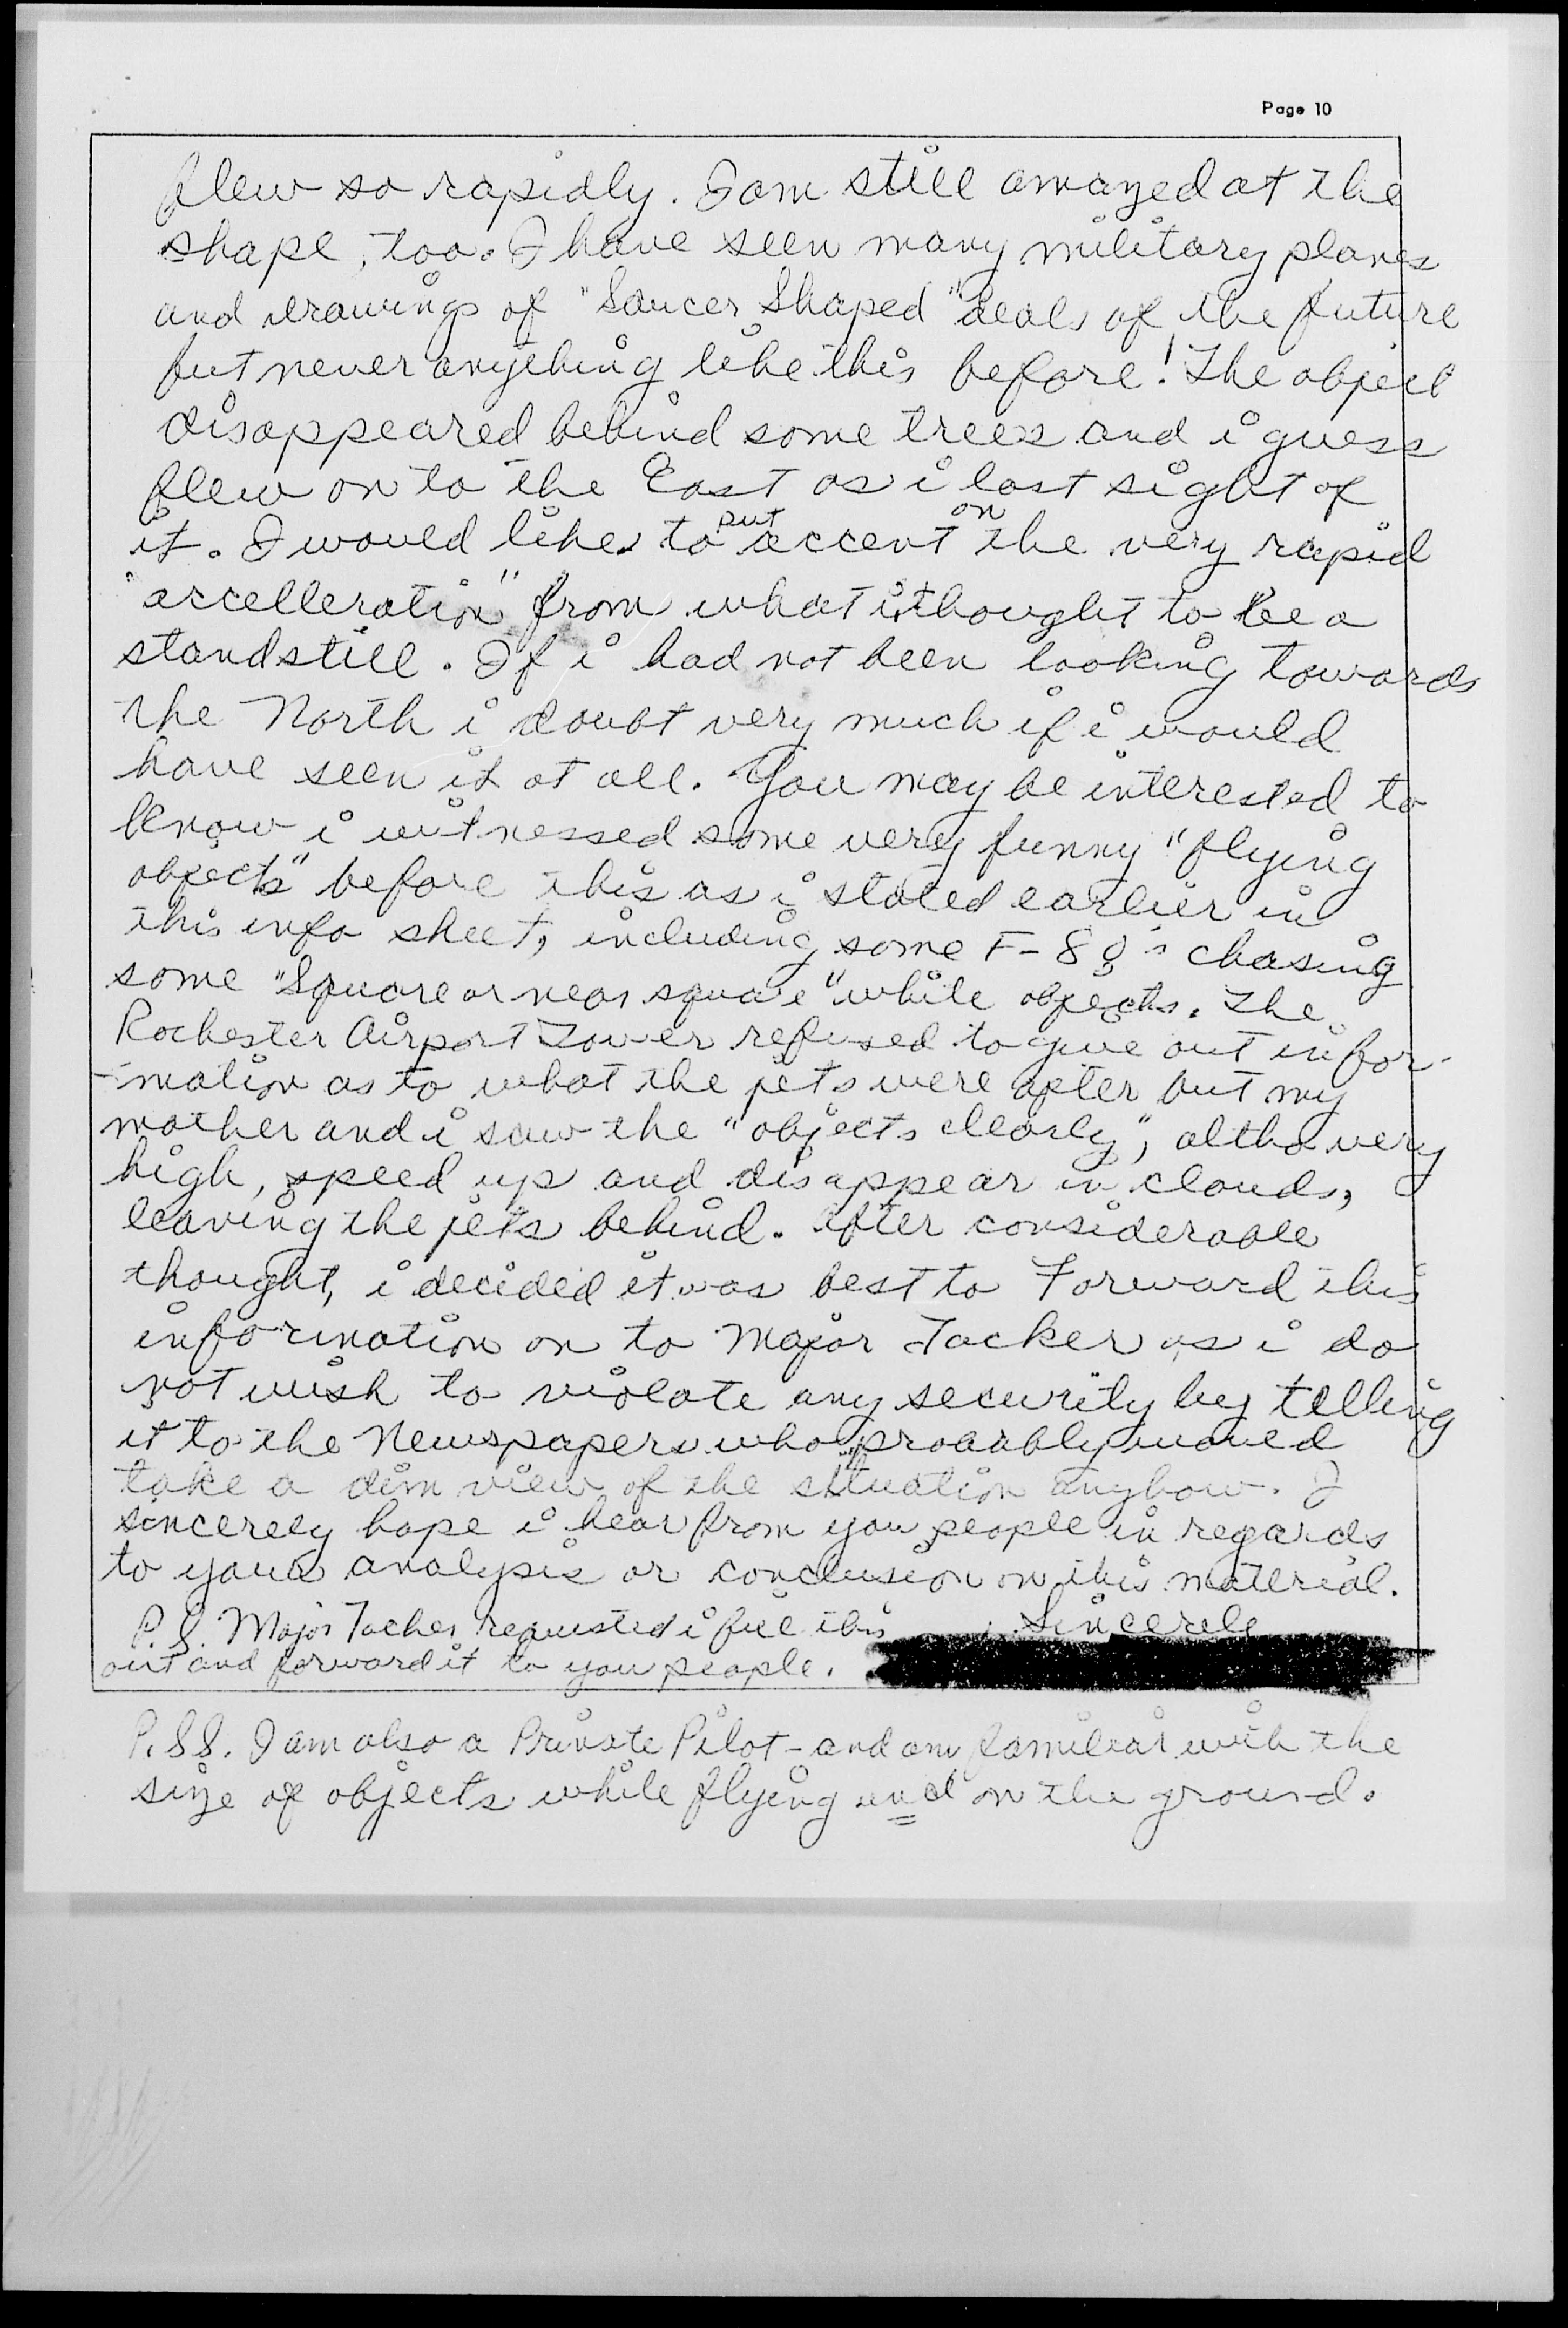 Page 10
flew so rapidly. I am still amazed at the
shape, too. I have seen many military planes
and drawings of "Saucer Shaped" deals of the future
but never anything like this before! The object
disappeared behind some trees and i guess
flew on to the East as i lost sight of
it. I would like to put accent on the very rapid
"accelleration" from what i thought to be a
standstill. If i had not been looking towards
the North i doubt very much if i would
have seen it at all. You may be interested to
know i witnessed some very funny "flying
objects" before this as i stated earlier in
this info sheet, including some F-89's chasing
some "Square or near square" white objects. The
Rochester Airport Tower refused to give out infor-
-mation as to what the jets were after but my
mother and i saw the "objects clearly", altho very
high, speed up and disappear in clouds,
leaving the jets behind. After considerable
thought, i decided it was best to Forward this
information on to Major Tacker as i do
not wish to violate any security by telling
it to the Newspapers who probably would
take a dim view of the situation anyhow. I
sincerely hope i hear from you people in regards
to your analysis or conclusion on this material.
P.S. Major Tacker requested i fill this Sincerely
out and forward it to you people.
P.S.S. I am also a Private Pilot - and am familiar with the
size of objects while flying and on the ground.